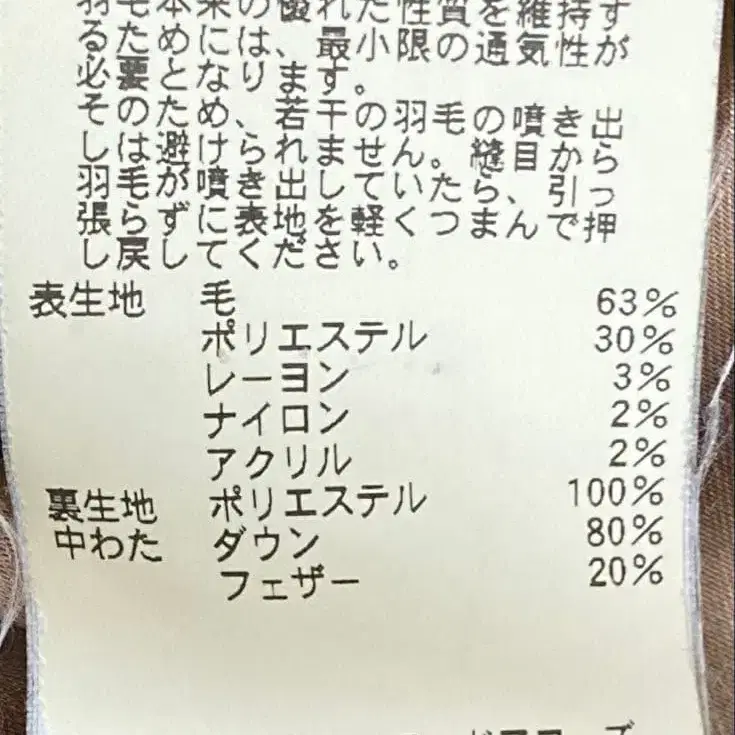 羽毛本来の優れた性質を維持す
るためには、最小限の通気性が
必要となります。
そのため、若干の羽毛の噴き出
しは避けられません。縫目から
羽毛が噴き出していたら、引っ
張らずに表地を軽くつまんで押
し戻してください。
表生地 毛 63%
ポリエステル 30%
レーヨン 3%
ナイロン 2%
アクリル 2%
裏生地 ポリエステル 100%
中わた ダウン 80%
フェザー 20%